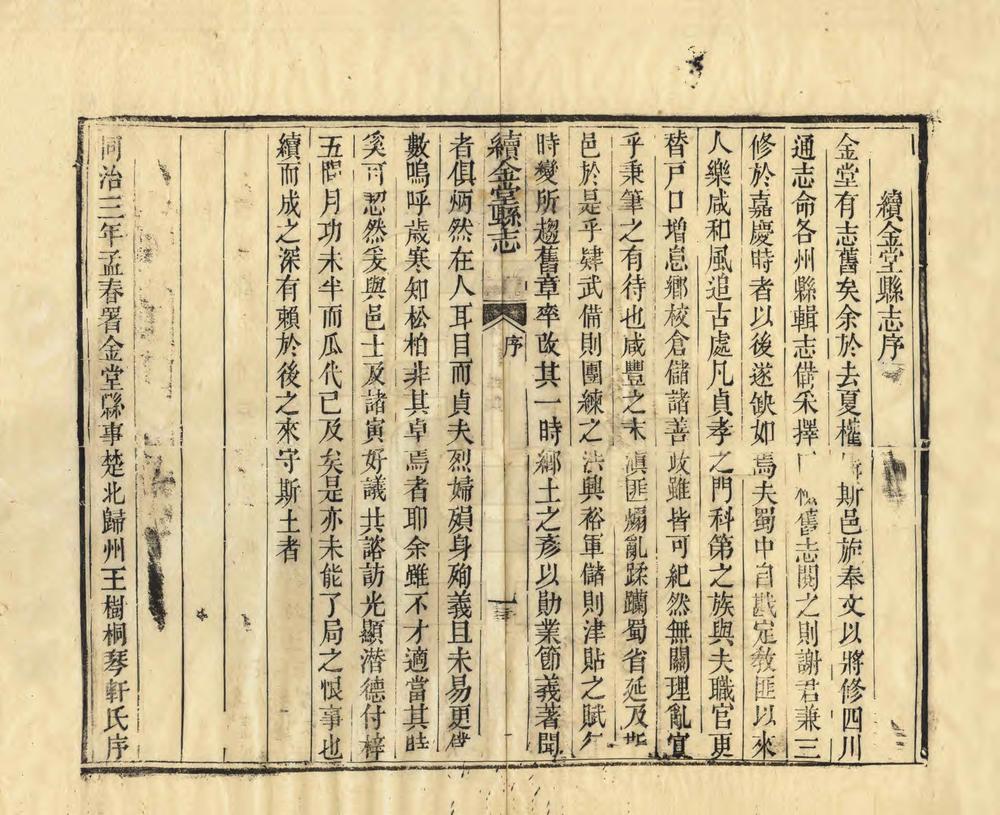 續金堂縣志序
金堂有志舊矣余於去夏權斯邑旋奉文以將修四川
通志命各州縣輯志備采擇舊志閱之則謝君兼三
修於嘉慶時者以後遂缺如焉夫蜀中自戡定教匪以來
人樂咸和風追古處凡貞孝之門科第之族與夫職官更
替戸口增息鄉校倉儲諸善政雖皆可紀然無關理亂宜
乎秉筆之有待也咸豐之末滇匪煽亂蹂躪蜀省延及
邑於是乎肄武備則團練之法興裕軍儲則津貼之賦
時變所趨舊章率改其一時鄉土之彥以勛業節義著聞
續金堂縣志
序
一
者俱炳然在人耳目而貞夫烈婦殞身殉義且未易更
數嗚呼歲寒知松柏非其卓焉者耶余雖不才適當其時
奚可恝然爰與邑士及諸寅好議共諮訪光顯潛德付梓
五閱月功未半而瓜代已及矣是亦未能了局之恨事也
續而成之深有賴於後之來守斯土者
同治三年孟春署金堂縣事楚北歸州王樹桐琴軒氏序